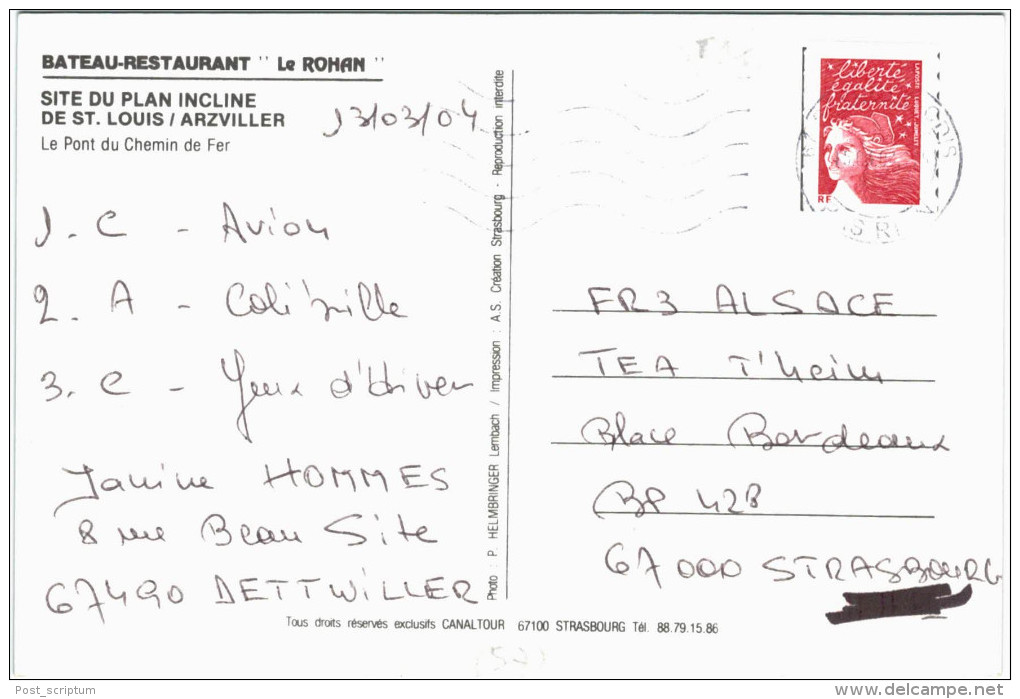 BATEAU-RESTAURANT '' Le ROHAN ''
SITE DU PLAN INCLINE
DE ST. LOUIS / ARZVILLER
Le Pont du Chemin de Fer
13/03/04
1. C - Avion
2. A - Coli'brille
3. C - Yeux d'hiver
Janine HOMMES
8 rue Beau Site
67490 DETTWILLER
Photo : P. HELMBRINGER Lembach / Impression : A.S. Création Strasbourg - Reproduction interdite
liberté
égalité
fraternité
RF
FR3 ALSACE
TEA T'heim
Place Bordeaux
BP 428
67000 STRASBOURG
Tous droits réservés exclusifs CANALTOUR 67100 STRASBOURG Tél. 88.79.15.86
Post_scriptum
delcampe.net